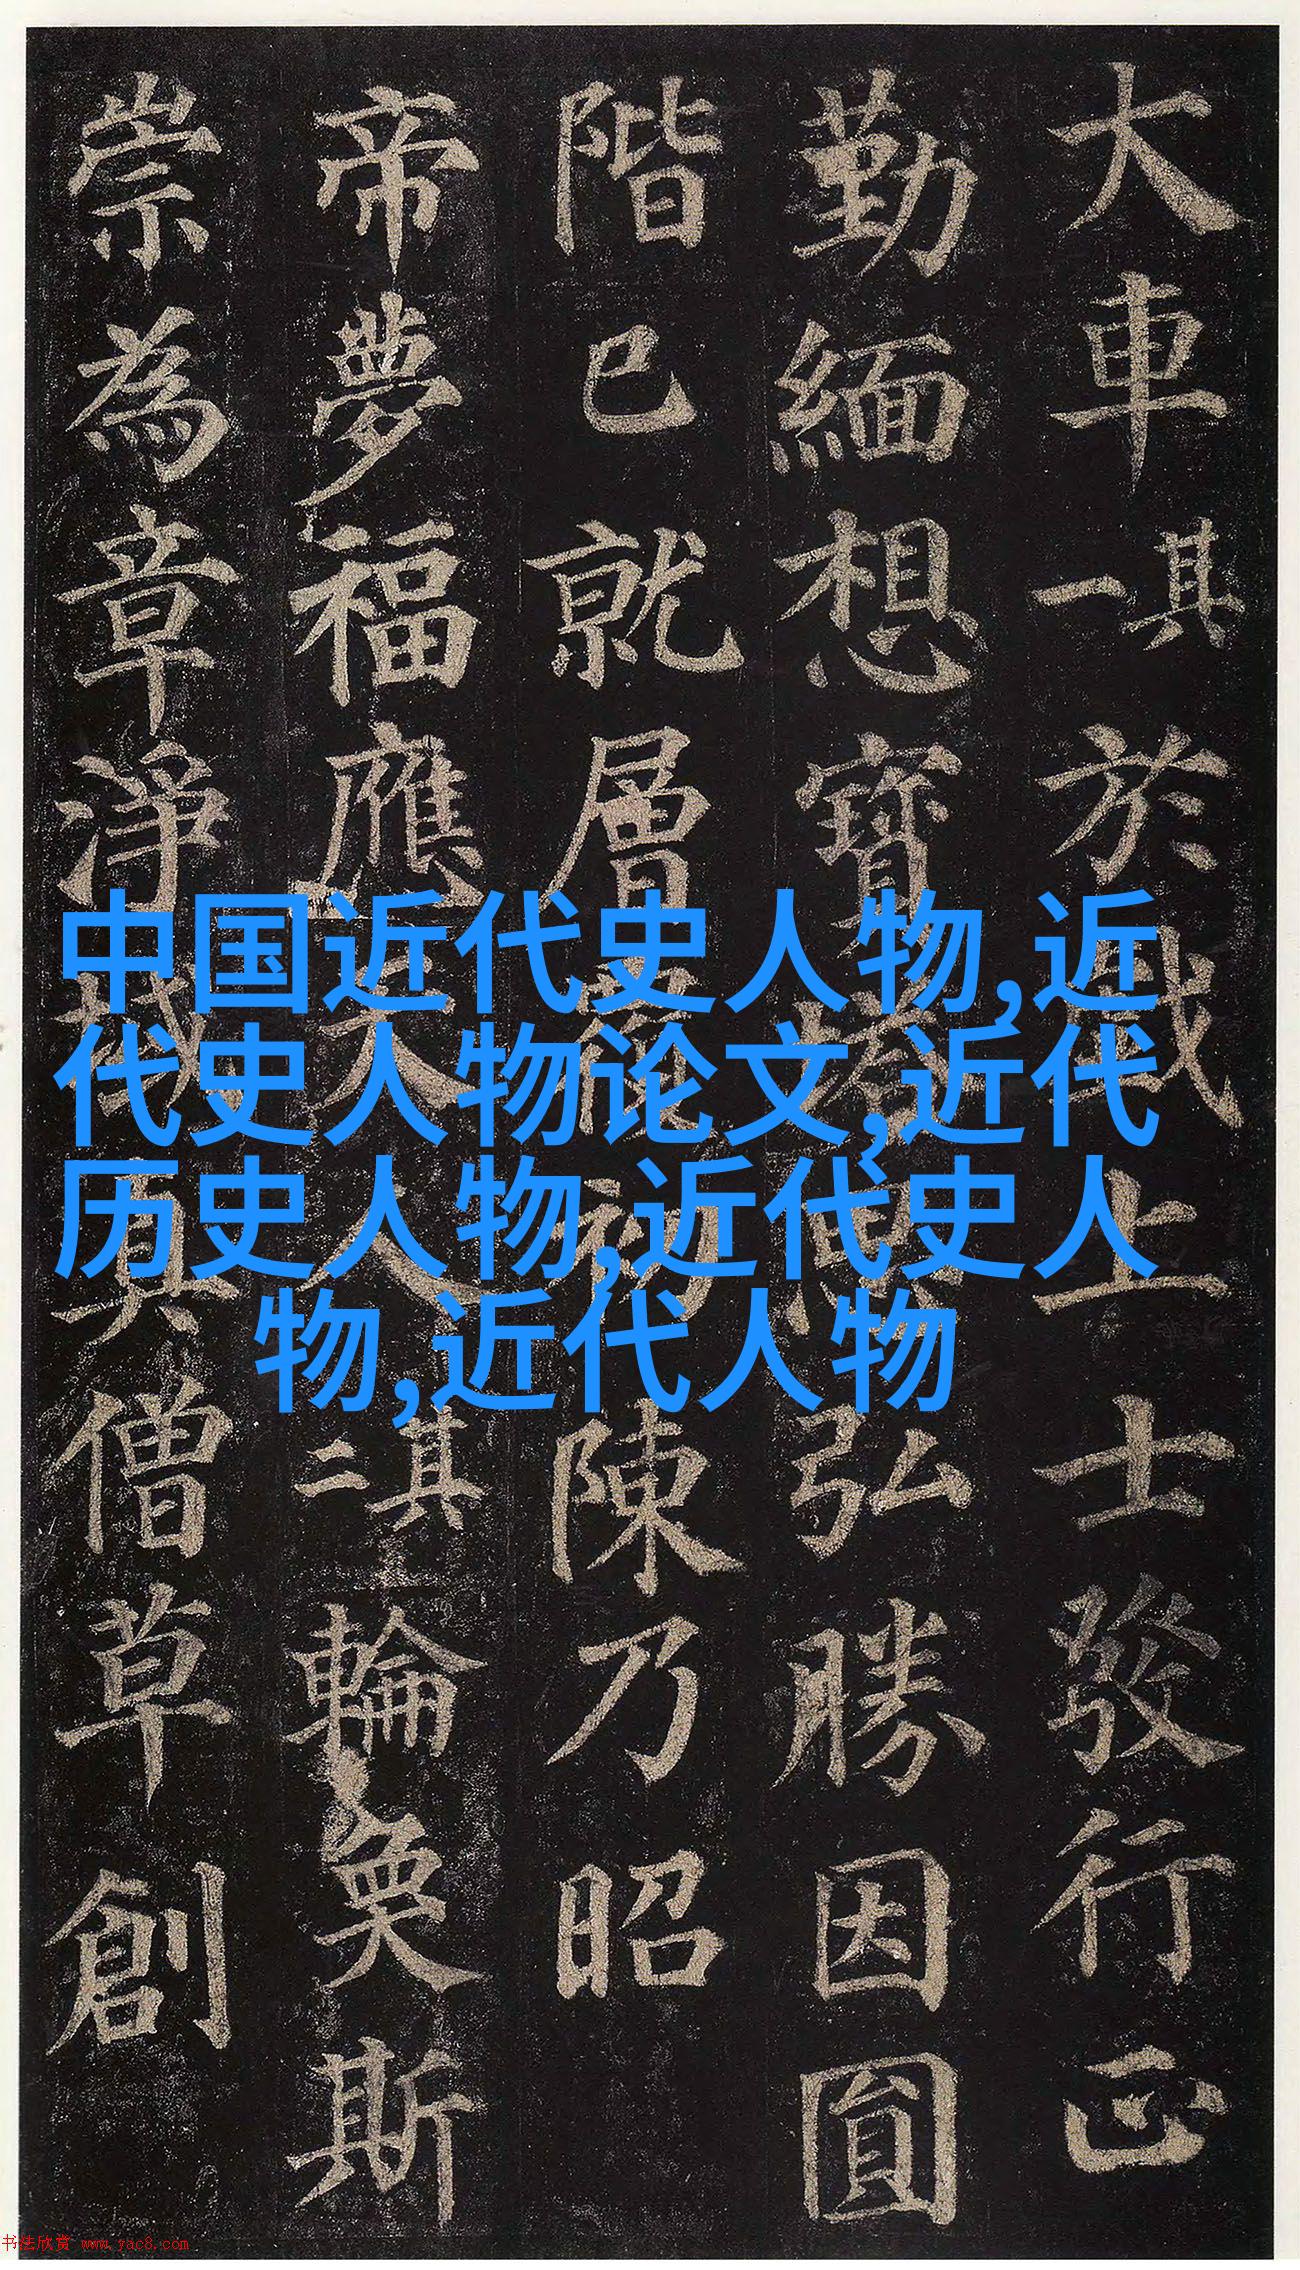 大車其一於戲上士發行正
勤緬想寶塔思弘勝因圓
階已就層覆初陳乃昭
帝夢福應天人其二輪奐斯
崇為章淨域真僧草創
中国近代史人物,近
代史人物论文,近代
历史人物,近代史人
物,近代人物
书法欣赏 www.yac8.com